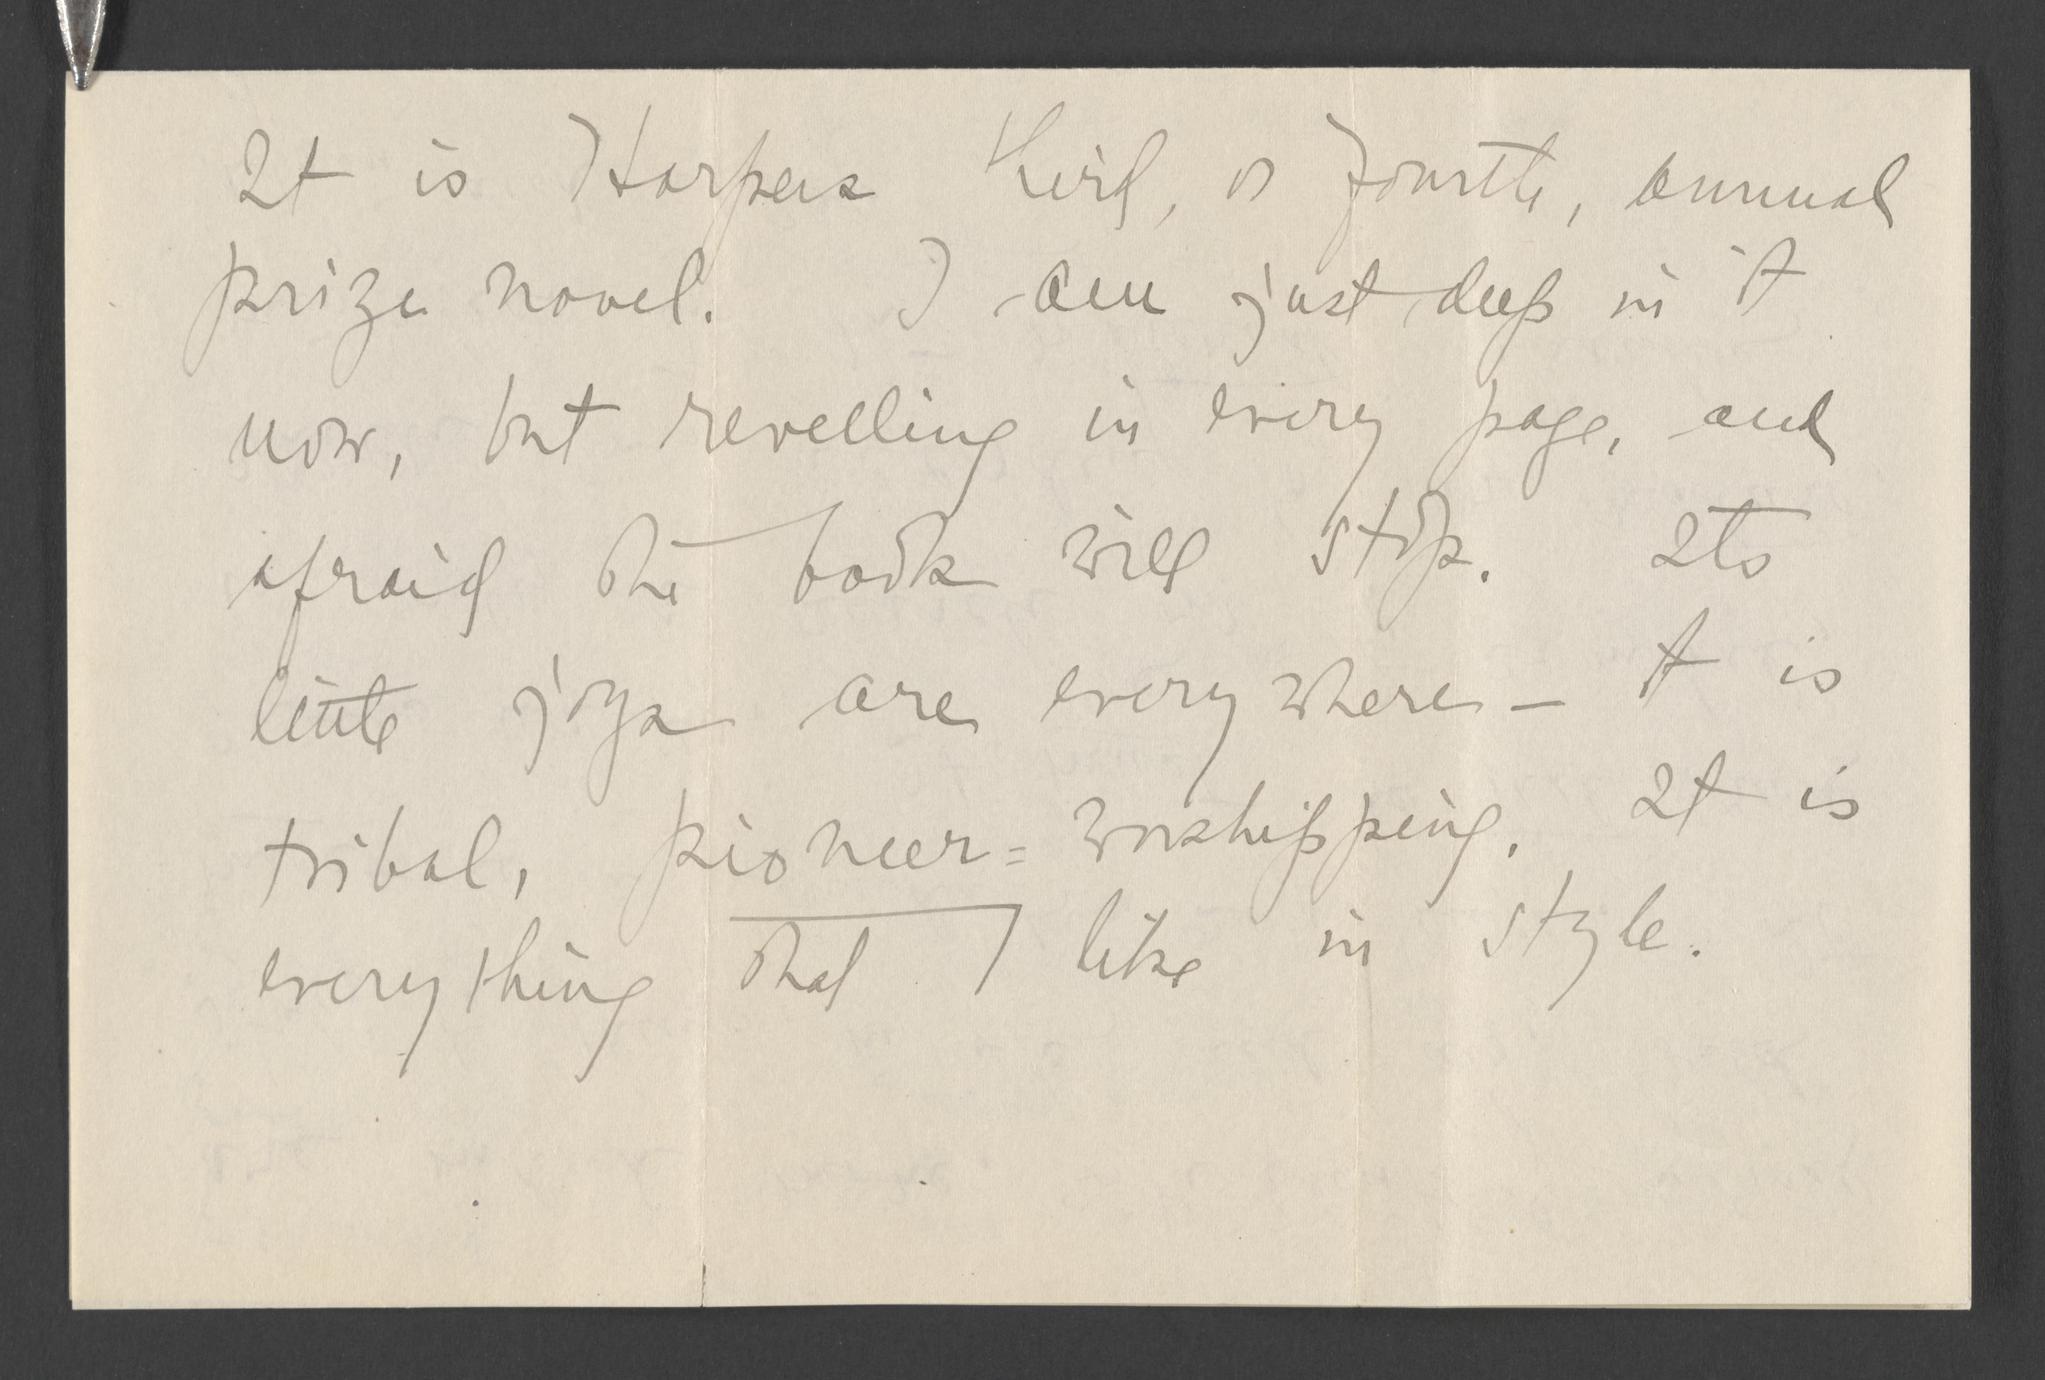 It is Harpers third, or fourth, annual
prize novel. I am just deep in it
now, but revelling in every page, and
afraid the book will stop. Its
little joys are everywhere - it is
tribal, pioneer=worshipping. It is
everything that I like in style.